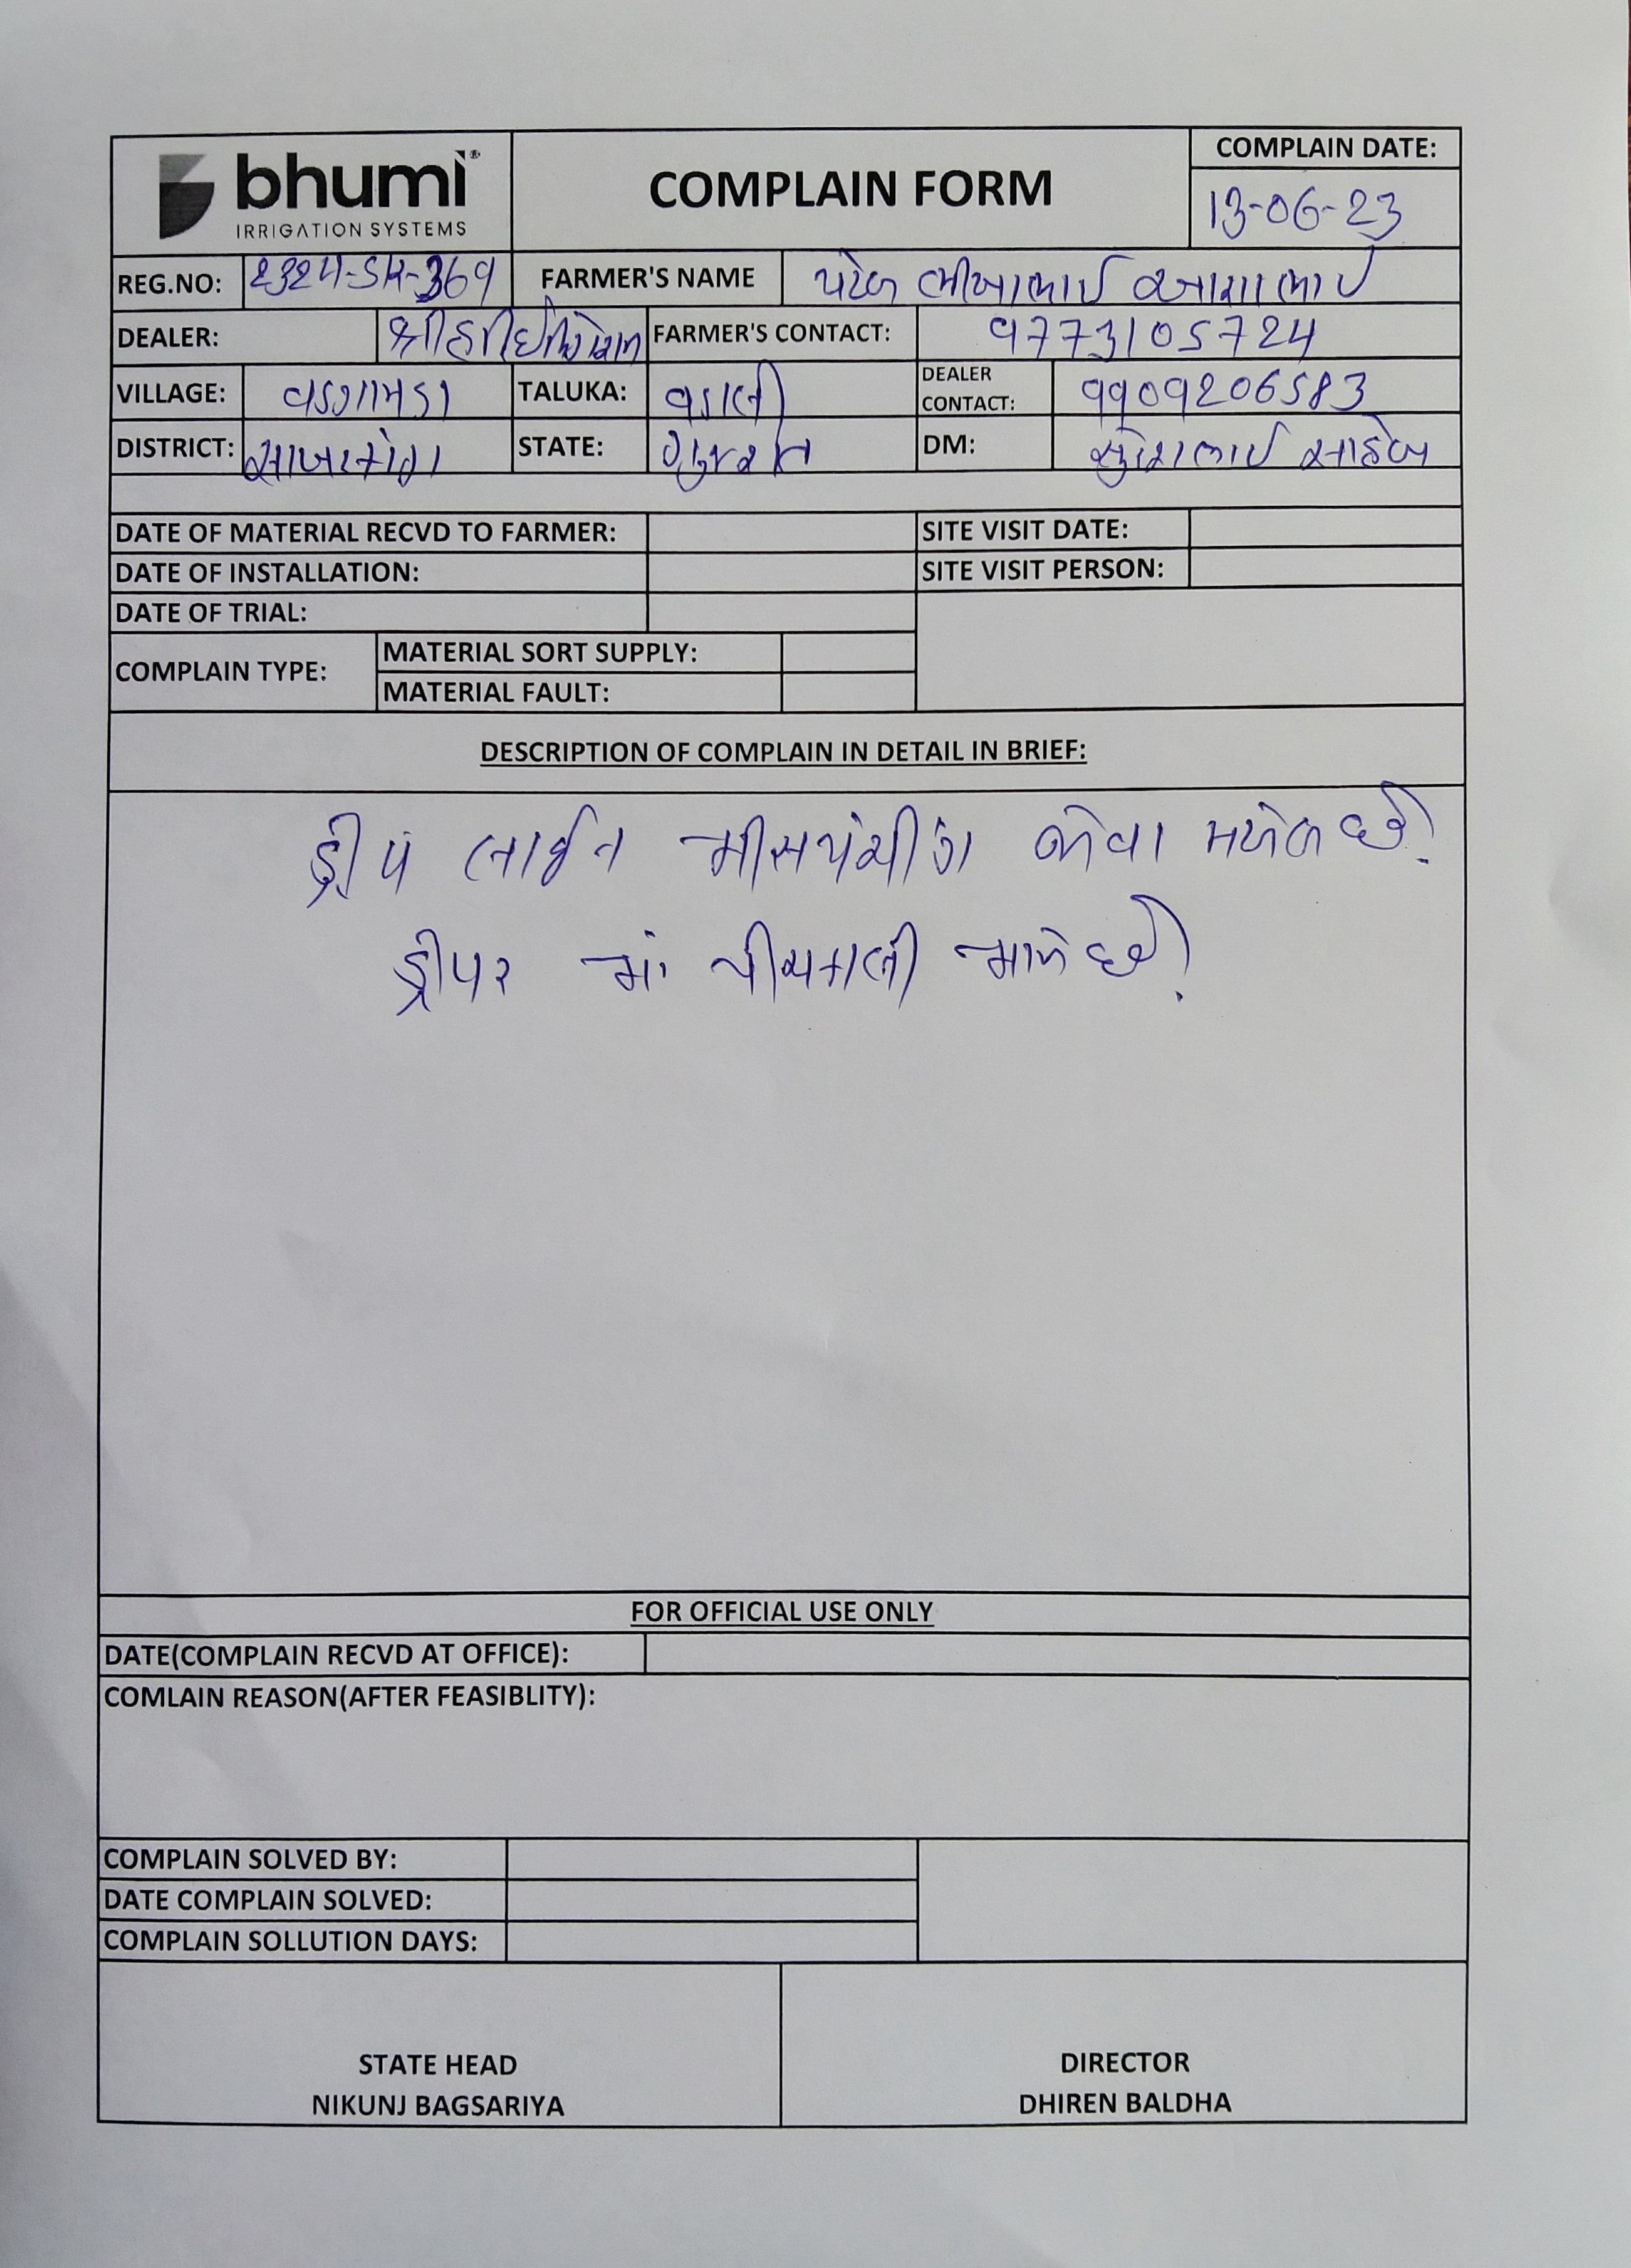 bhumi®
IRRIGATION SYSTEMS
COMPLAIN FORM
COMPLAIN DATE:
13-06-23
REG.NO: 2324-SK-369 FARMER'S NAME પટેલ ભીખાભાઈ આશાભાઈ
DEALER: શ્રીહરી FARMER'S CONTACT: 9773105724
VILLAGE: વડગામડા TALUKA: વડાલી DEALER CONTACT: 9909206583
DISTRICT: સાબરકાંઠા STATE: ગુજરાત DM: સુરેશભાઈ સાહેબ
DATE OF MATERIAL RECVD TO FARMER: SITE VISIT DATE:
DATE OF INSTALLATION: SITE VISIT PERSON:
DATE OF TRIAL:
COMPLAIN TYPE: MATERIAL SORT SUPPLY:
MATERIAL FAULT:
DESCRIPTION OF COMPLAIN IN DETAIL IN BRIEF:
ડ્રીપ લાઈન મીસપંચીંગ જોવા મળેલ છે.
ડ્રીપર માં પીચકારી મારે છે.
FOR OFFICIAL USE ONLY
DATE(COMPLAIN RECVD AT OFFICE):
COMLAIN REASON(AFTER FEASIBLITY):
COMPLAIN SOLVED BY:
DATE COMPLAIN SOLVED:
COMPLAIN SOLLUTION DAYS:
STATE HEAD
NIKUNJ BAGSARIYA
DIRECTOR
DHIREN BALDHA